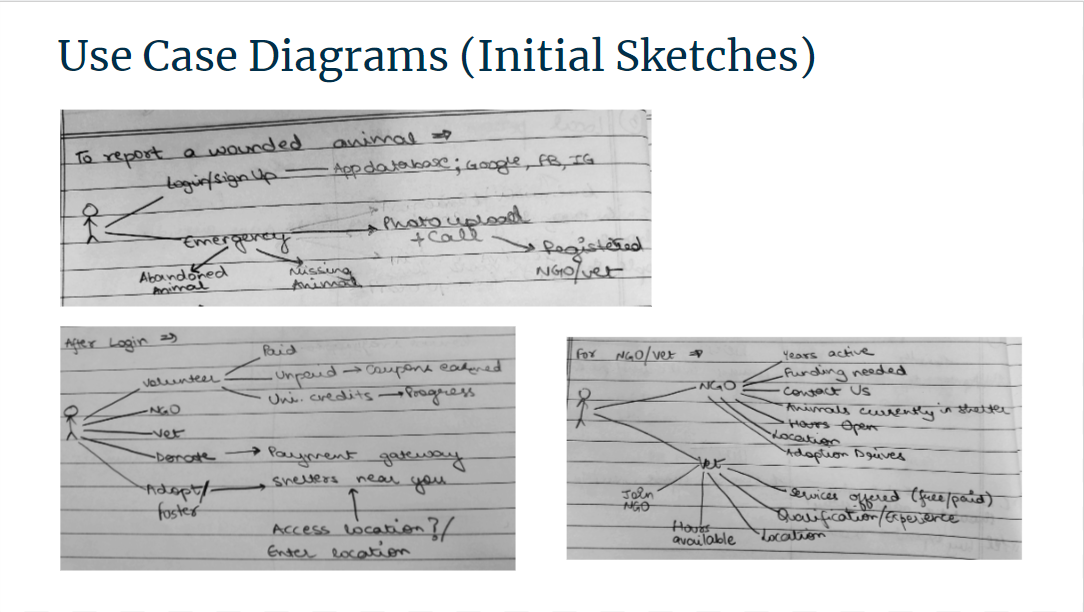 Use Case Diagrams (Initial Sketches)
To report a wounded animal ⇒
Login/Sign Up — App database; Google, FB, IG
Emergency
Photo upload
+ Call
Registered
NGO/vet
Abandoned
Animal
Missing
Animal
After Login ⇒
Volunteer
Paid
Unpaid → Coupons earned
Uni. credits → Progress
NGO
Vet
Donate → Payment gateway
Adopt/
foster
shelters near you
Access location?/
Enter location
For NGO/vet ⇒
NGO
Years active
Funding needed
Contact Us
Animals currently in shelter
Hours Open
Location
Adoption Drives
Vet
Join
NGO
Hours
available
Location
Qualification/Experience
Services offered (free/paid)